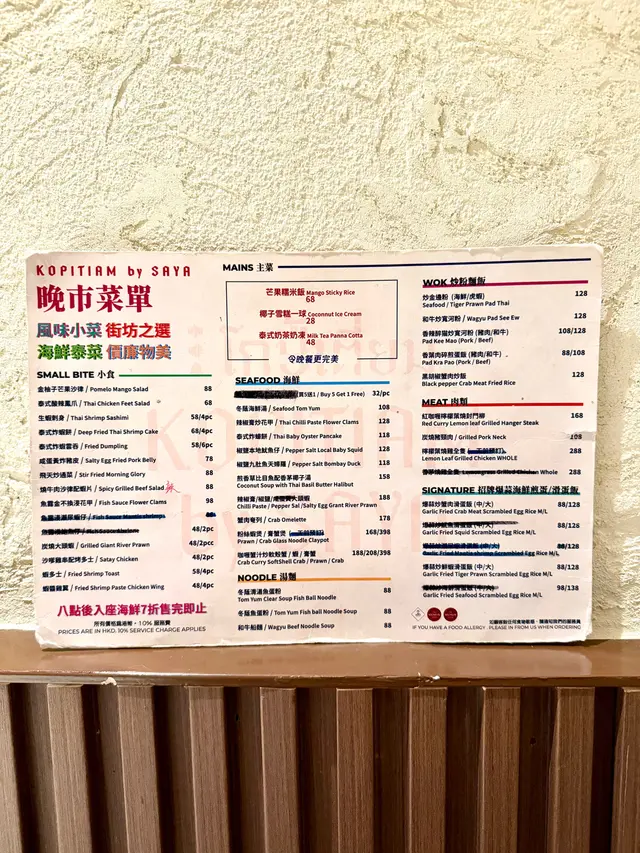 KOPITIAM by SAYA
晚市菜單
風味小菜 街坊之選
海鮮泰菜 價廉物美
SMALL BITE 小食
金柚子芒果沙律 / Pomelo Mango Salad 88
泰式酸辣鳳爪 / Thai Chicken Feet Salad 68
生蝦刺身 / Thai Shrimp Sashimi 58/4pc
泰式炸蝦餅 / Deep Fried Thai Shrimp Cake 68/4pc
泰式炸蝦雲吞 / Fried Dumpling 58/6pc
咸蛋黃炸豬皮 / Salty Egg Fried Pork Belly 78
飛天炒通菜 / Stir Fried Morning Glory 88
燒牛肉沙律配蝦片 / Spicy Grilled Beef Salad 88
魚露金不換浸花甲 / Fish Sauce Flower Clams 98
Fish Sauce Mantis shrimps
48/2pc
炭燒大頭蝦 / Grilled Giant River Prawn 48/2pcc
沙嗲雞串配烤多士 / Satay Chicken 48/2pc
蝦多士 / Fried Shrimp Toast 58/4pc
蝦醬雞翼 / Fried Shrimp Paste Chicken Wing 48/4pc
八點後入座海鮮7折售完即止
所有價格爲港幣，10% 服務費
PRICES ARE IN HKD. 10% SERVICE CHARGE APPLIES
MAINS 主菜
芒果糯米飯 Mango Sticky Rice
68
椰子雪糕一球 Coconut Ice Cream
28
泰式奶茶奶凍 Milk Tea Panna Cotta
48
令晚餐更完美
SEAFOOD 海鮮
(買5送1 / Buy 5 Get 1 Free) 32/pc
冬蔭海鮮湯 / Seafood Tom Yum 108
辣椒膏炒花甲 / Thai Chilli Paste Flower Clams 128
泰式炸蠔餅 / Thai Baby Oyster Pancake 118
椒鹽本地魷魚仔 / Pepper Salt Local Baby Squid 128
椒鹽九肚魚天婦羅 / Pepper Salt Bombay Duck 118
煎香草比目魚配香茅椰子湯 158
Coconut Soup with Thai Basil Butter Halibut
辣椒膏/椒鹽/鹹蛋黃大頭蝦 188
Chili Paste / Pepper Sal /Salty Egg Grant River Prawn
蟹肉奄列 / Crab Omelette 178
粉絲蝦煲 / 膏蟹煲 168/398
Prawn / Crab Glass Noodle Claypot
咖喱蟹汁炒軟殼蟹 / 蝦 / 膏蟹 188/208/398
Crab Curry SoftShell Crab / Prawn / Crab
NOODLE 湯麵
冬蔭清湯魚蛋粉 88
Tom Yum Clear Soup Fish Ball Noodle
冬蔭魚蛋粉 / Tom Yum Fish ball Noodle Soup 88
和牛船麵 / Wagyu Beef Noodle Soup 88
WOK 炒粉麵飯
炒金邊粉 (海鮮/虎蝦) 128
Seafood / Tiger Prawn Pad Thai
和牛炒寬河粉 / Wagyu Pad See Ew 128
香辣醉貓炒寬河粉 (豬肉/和牛) 108/128
Pad Kee Mao (Pork / Beef)
香葉肉碎煎蛋飯 (豬肉/和牛) 88/108
Pad Kra Pao (Pork / Beef)
黑胡椒蟹肉炒飯 128
Black pepper Crab Meat Fried Rice
MEAT 肉類
紅咖喱檸檬葉燒封門柳 168
Red Curry Lemon leaf Grilled Hanger Steak
炭燒豬頸肉 / Grilled Pork Neck 108
檸檬葉燒雞全隻 288
Lemon Leaf Grilled Chicken WHOLE
香茅燒雞全隻 Lemongrass Grilled Chicken Whole 288
SIGNATURE 招牌爆蒜海鮮煎蛋/滑蛋飯
爆蒜炒蟹肉滑蛋飯 (中/大) 88/128
Garlic Fried Crab Meat Scrambled Egg Rice M/L
88/128
Garlic Fried Squid Scrambled Egg Rice M/L
88/128
Garlic Fried Mantis Scrambled Egg Rice M/L
爆蒜炒鮮蝦滑蛋飯 (中/大) 88/128
Garlic Fried Tiger Prawn Scrambled Egg Rice M/L
爆蒜炒海鮮滑蛋飯 (中/大) 98/138
Garlic Fried Seafood Scrambled Egg Rice M/L
如顧客對任何食物敏感，請通知我們的服務員
IF YOU HAVE A FOOD ALLERGY . PLEASE IN FROM US WHEN ORDERING